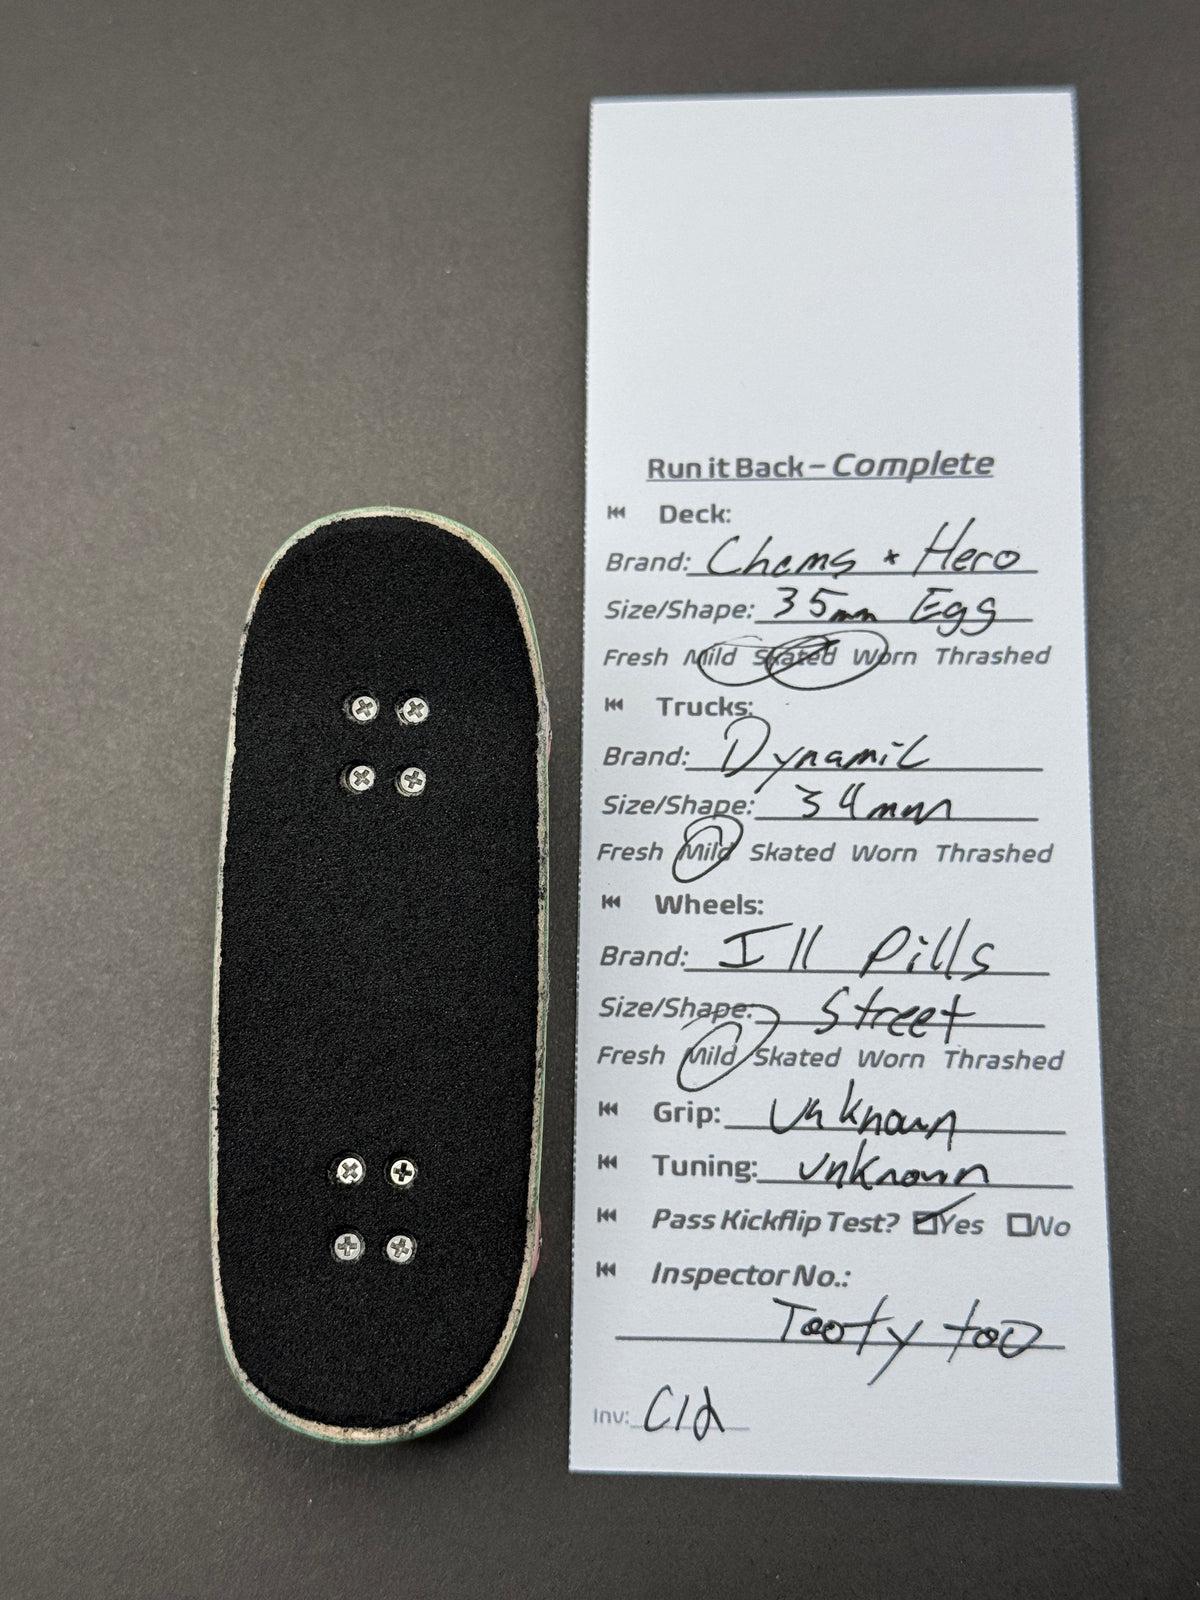 Run it Back – Complete
Deck:
Brand: Chems * Hero
Size/Shape: 35mm Egg
Fresh Mild Skated Worn Thrashed
Trucks:
Brand: Dynamic
Size/Shape: 34mm
Fresh Mild Skated Worn Thrashed
Wheels:
Brand: Ill Pills
Size/Shape: Street
Fresh Mild Skated Worn Thrashed
Grip: Unknown
Tuning: Unknown
Pass Kickflip Test? Yes No
Inspector No.:
Tooty too
Inv: